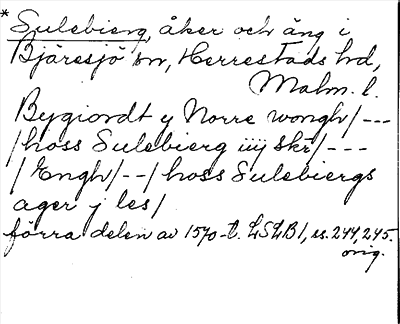 * Sulebierg, åker och äng i
Bjäresjö sn, Herrestads hd,
Malm. l.
Bygiordt y Norre wongh/---
/hoss Sulebierg iiij skr/---
/Engh/--/hoss Sulebiergs
ager j les/
förra delen av 1570-t. LSLB1, ss. 244, 245.
orig.